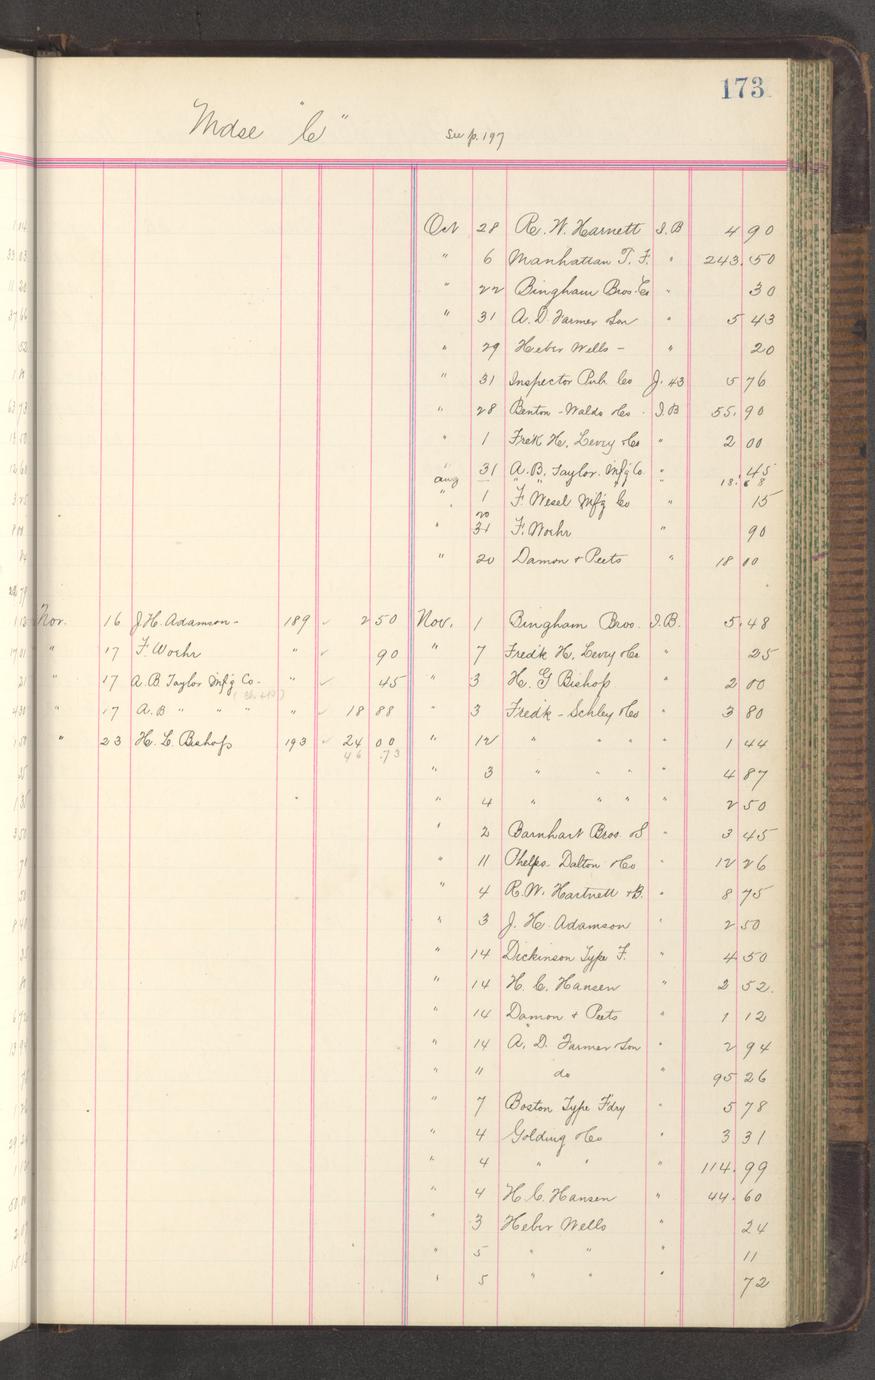 173
Mdse "C" See p. 197
Oct 28 R. W. Harnett I.B 4 90
" 6 Manhattan T. F. " 243.50
" 22 Bingham Bros. Co " 30
" 31 A. D Farmer Son " 5 43
" 29 Heber Wells - " 20
" 31 Inspector Pub Co J. 43 5 76
" 28 Benton - Waldo & Co. I.B 55.90
" 1 Fredk H. Levey & Co " 2 00
" 31 A. B. Taylor. Mf'g Co. " 45
Aug — " " " " 18.
" 1 F. Wesel Mf'g Co " 15
" 31 F. Woehr " 90
" 20 Damon & Peets " 18 00
Nov. 16 J. H. Adamson - 189 ✓ 2 50 Nov. 1 Bingham Bros. I.B. 5.48
" 17 F. Woehr " ✓ 90 " 7 Fredk H. Levey & Co " 25
" 17 A. B. Taylor Mf'g Co - " ✓ 45 " 3 H. G Bishop " 2 00
" 17 A. B " " " " ✓ 18 88 " 3 Fredk - Schley & Co " 3 80
" 23 H. G. Bishop 193 ✓ 24 00 " 12 " " " " 1 44
46.73
" 3 " " " " 4 87
" 4 " " " " 2 50
" 2 Barnhart Bros. & S " 3 45
" 11 Phelps - Dalton & Co " 12 26
" 4 R. W. Hartnett & B. " 8 75
" 3 J. H. Adamson " 2 50
" 14 Dickinson Type F. " 4 50
" 14 H. C. Hansen " 2 52.
" 14 Damon & Peets " 1 12
" 14 A. D. Farmer & Son " 2 94
" 11 do " 95 26
" 7 Boston Type F'dry " 5 78
" 4 Golding & Co " 3 31
" 4 " " " 114.99
" 4 H. C. Hansen " 44.60
" 3 Heber Wells " 24
" 5 " " " 11
" 5 " " " 72